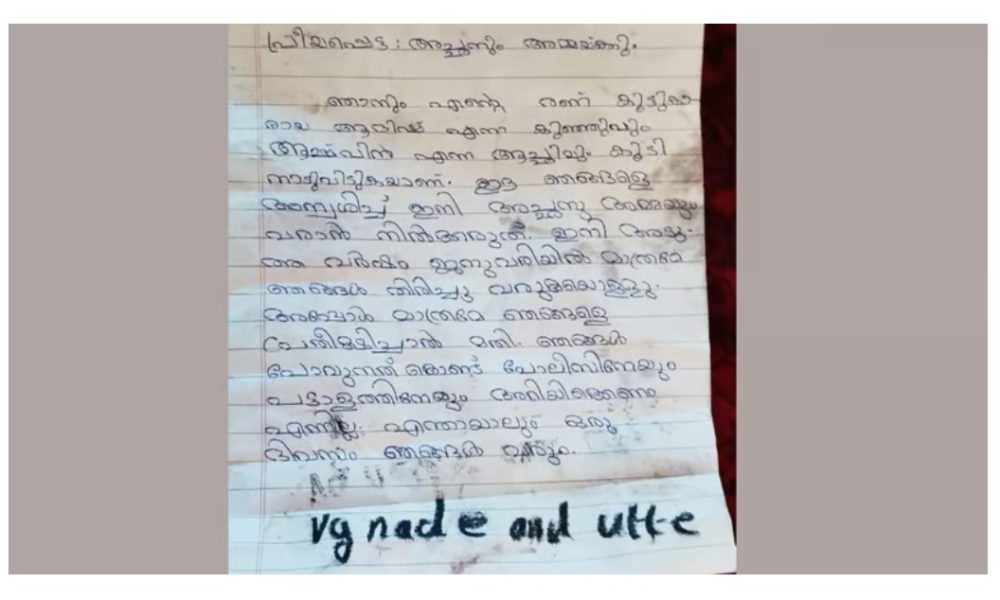 പ്രീയപ്പെട്ട : അച്ഛനും അമ്മയ്ക്കും.
ഞാനും എന്റെ രണ്ട് കൂട്ടുകാ
രായ ആദിഷ് എന്ന കുഞ്ഞുവും
അശ്വിൻ എന്ന അച്ചുവും കൂടി
നാടുവിടുകയാണ്. ഇത് ഞങ്ങളെ
അന്വേശിച്ച് ഇനി അച്ഛനു അമ്മയും
വരാൻ നിൽക്കരുത്. ഇനി അടു-
ത്ത വർഷം ജനുവരിയിൽ മാത്രമേ
ഞങ്ങൾ തിരിച്ചു വരുകയൊള്ളു.
അപ്പോൾ മാത്രമേ ഞങ്ങളെ
പ്രതീക്ഷിച്ചാൽ മതി. ഞങ്ങൾ
പോവുന്നത് കൊണ്ട് പോലിസിനേയും
പട്ടാളത്തിനേയും അറിയിക്കണം
എന്നില്ല. എന്തായാലും ഒരു
ദിവസം ഞങ്ങൾ വരും.
vg nade and utte